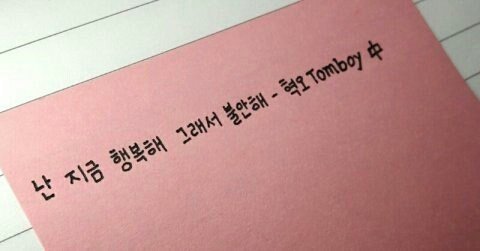 난 지금 행복해 그래서 불안해 - 혁오 Tomboy 中